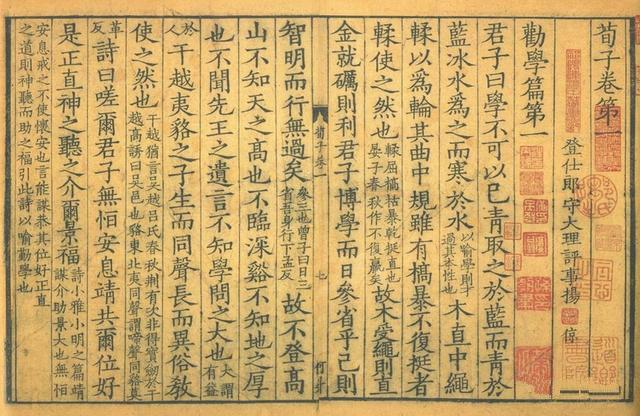 荀子卷第一
登仕郎守大理評事楊 倞
勸學篇第一
君子曰學不可以已青取之於藍而青於
藍冰水為之而寒於水以喻學則才過其本性也木直中繩
輮以為輪其曲中規雖有槁暴不復挺者
輮使之然也輮屈槁枯暴乾挺直也晏子春秋作不復贏矣故木受繩則直
金就礪則利君子博學而日參省乎己則
荀子卷一
智明而行無過矣參三也曾子曰日三省吾身行下孟反故不登高
山不知天之高也不臨深谿不知地之厚
也不聞先王之遺言不知學問之大也大謂有益
於人干越夷貉之子生而同聲長而異俗教
使之然也干越猶言吳越呂氏春秋荆有次非得寶劒於干越高誘曰吳邑也貉東北夷同聲謂啼聲同貉莫
革反詩曰嗟爾君子無恒安息靖共爾位好
是正直神之聽之介爾景福詩小雅小明之篇靖謀介助景大也無恒
安息戒之不使懷安也言能謀恭其位好正直之道則神聽而助之福引此詩以喻勤學也